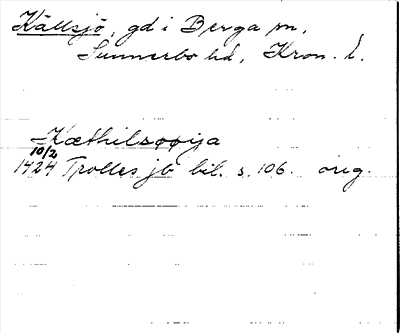 Källsjö, gd i Berga sn,
Sunnerbo hd, Kron. l.
Kæthilsøøija
10/2
1424 Trolles jb bil. s. 106. orig.